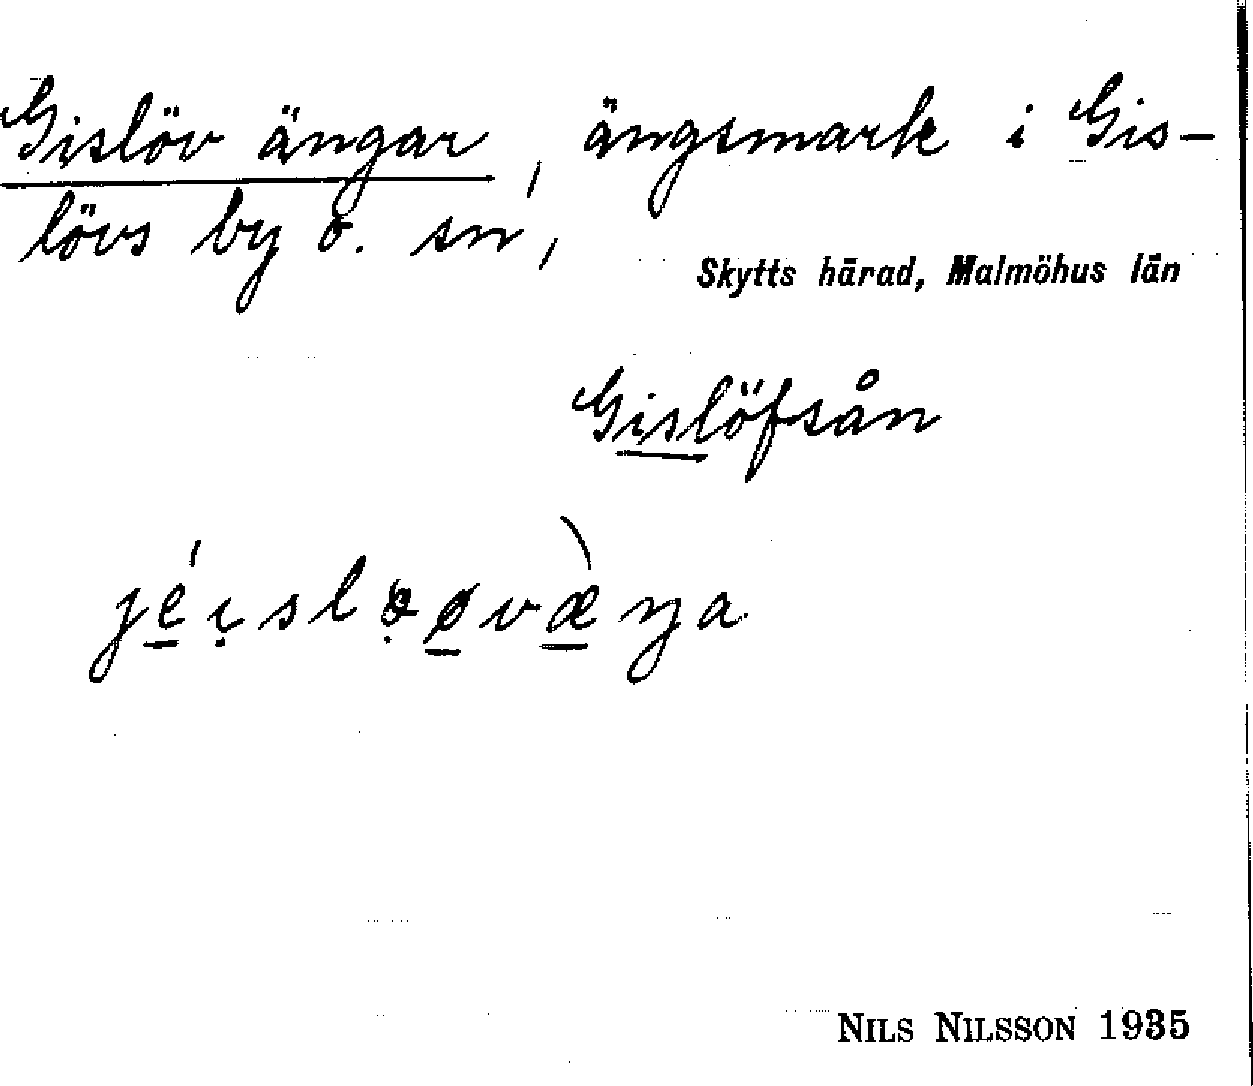 Gislöv ängar, ängsmark i Gis-
lövs by o. sn,
Skytts härad, Malmöhus län
Gislöfsån
NILS NILSSON 1935